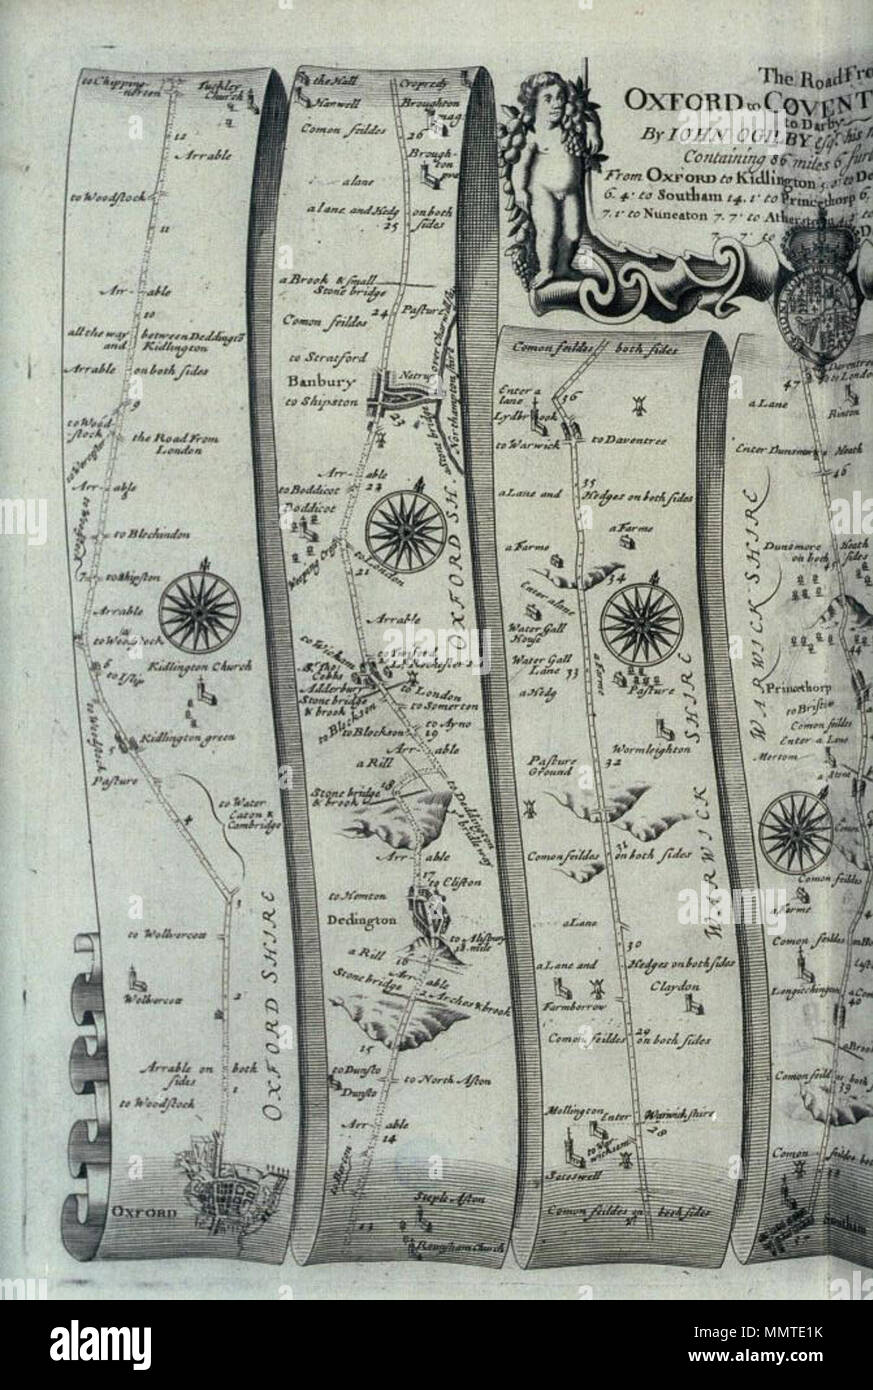 The Road Fro
OXFORD to COVENT
to Darby
By IOHN OGILBY Esqr. his M
Containing 86 miles 6 furl
From OXFORD to Kidlington 5.0. to De
6. 4. to Southam 14. 1. to Princethorp 6.
7. 1. to Nuneaton 7. 7. to
to Chipping-
norton
Tuckley
Church
12
Arrable
to Woodstock
11
Arr- able
10
all the way between Deddingto
and Kidlington
Arrable on both sides
9
to Wood-
stock
the Road From
London
Arr- able
to Blechindon
7
to Islip
Arrable
to Woodstock
6
to Islip
Kidlington Church
to Woodstock
5
Kidlington green
Pasture
4
to Water
Eaton &
Cambridge
3
to Wolvercott
2
Wolvercott
OXFORD SHIRE
Arrable on both
sides
1
to Woodstock
OXFORD
the Hall
Cropredy
Hanwell
Broughton
mag.
Comon feildes
26
Brough-
ton
a lane
a lane and Hedg on both
25 sides
a Brook & small
Stone bridge
24 Pasture
Comon feildes
to Stratford
Banbury
to Shipston
23
Stone bridge over Charwell flu
Northampton shire
Arr- able
to Boddicot
22
Boddicot
Weeping Cross
to London
21
OXFORD SH.
Arrable
to Wickam
Adderbury
Stone bridge
& brook
to London
to Somerton
to Ayno
to Bloxson
19
Arr- able
a Rill
Stone bridge
& brook
18
to Deddington
a bridleway
Arr- able
17
to Clifton
to Hemton
Dedington
to Alisbury
18 mile
a Rill
16
Arr- able
Stone bridge
2 Arches & brook
15
to Dunsto
to North Aston
Dunsto
Arr- able
14
to Barton
Steple Aston
13
Rousham Church
Comon feildes both sides
Enter a
lane
36
Lydbrook
to Warwick
to Daventree
35
a Lane and Hedges on both sides
a Farme
a Farme
34
Enter a lane
Water Gall
House
Water Gall
Lane
33
a Farme
a Hedg
Pasture
Wormleighton
WARWICK SHIRE
Pasture
Ground
32
31
Comon feildes on both sides
a Lane
30
a Lane and Hedges on both sides
Farmborrow
Claydon
29
Comon feildes on both sides
Mollington
Enter Warwickshire
28
to War-
wick
Comon feildes on both sides
Daventree
to London
47
a Lane
Enter Dunsmore Heath
46
WARWICK SHIRE
Dunsmore Heath
on both sides
45
44
Princethorp
to Bristow
Comon feildes
Enter a Lane
Comon feildes
a Farme
Comon feildes
Longichington
40
a Brook
Comon feildes on both
39
Comon feildes both
38
Southam
alamy
Image ID: MMTE1K
www.alamy.com